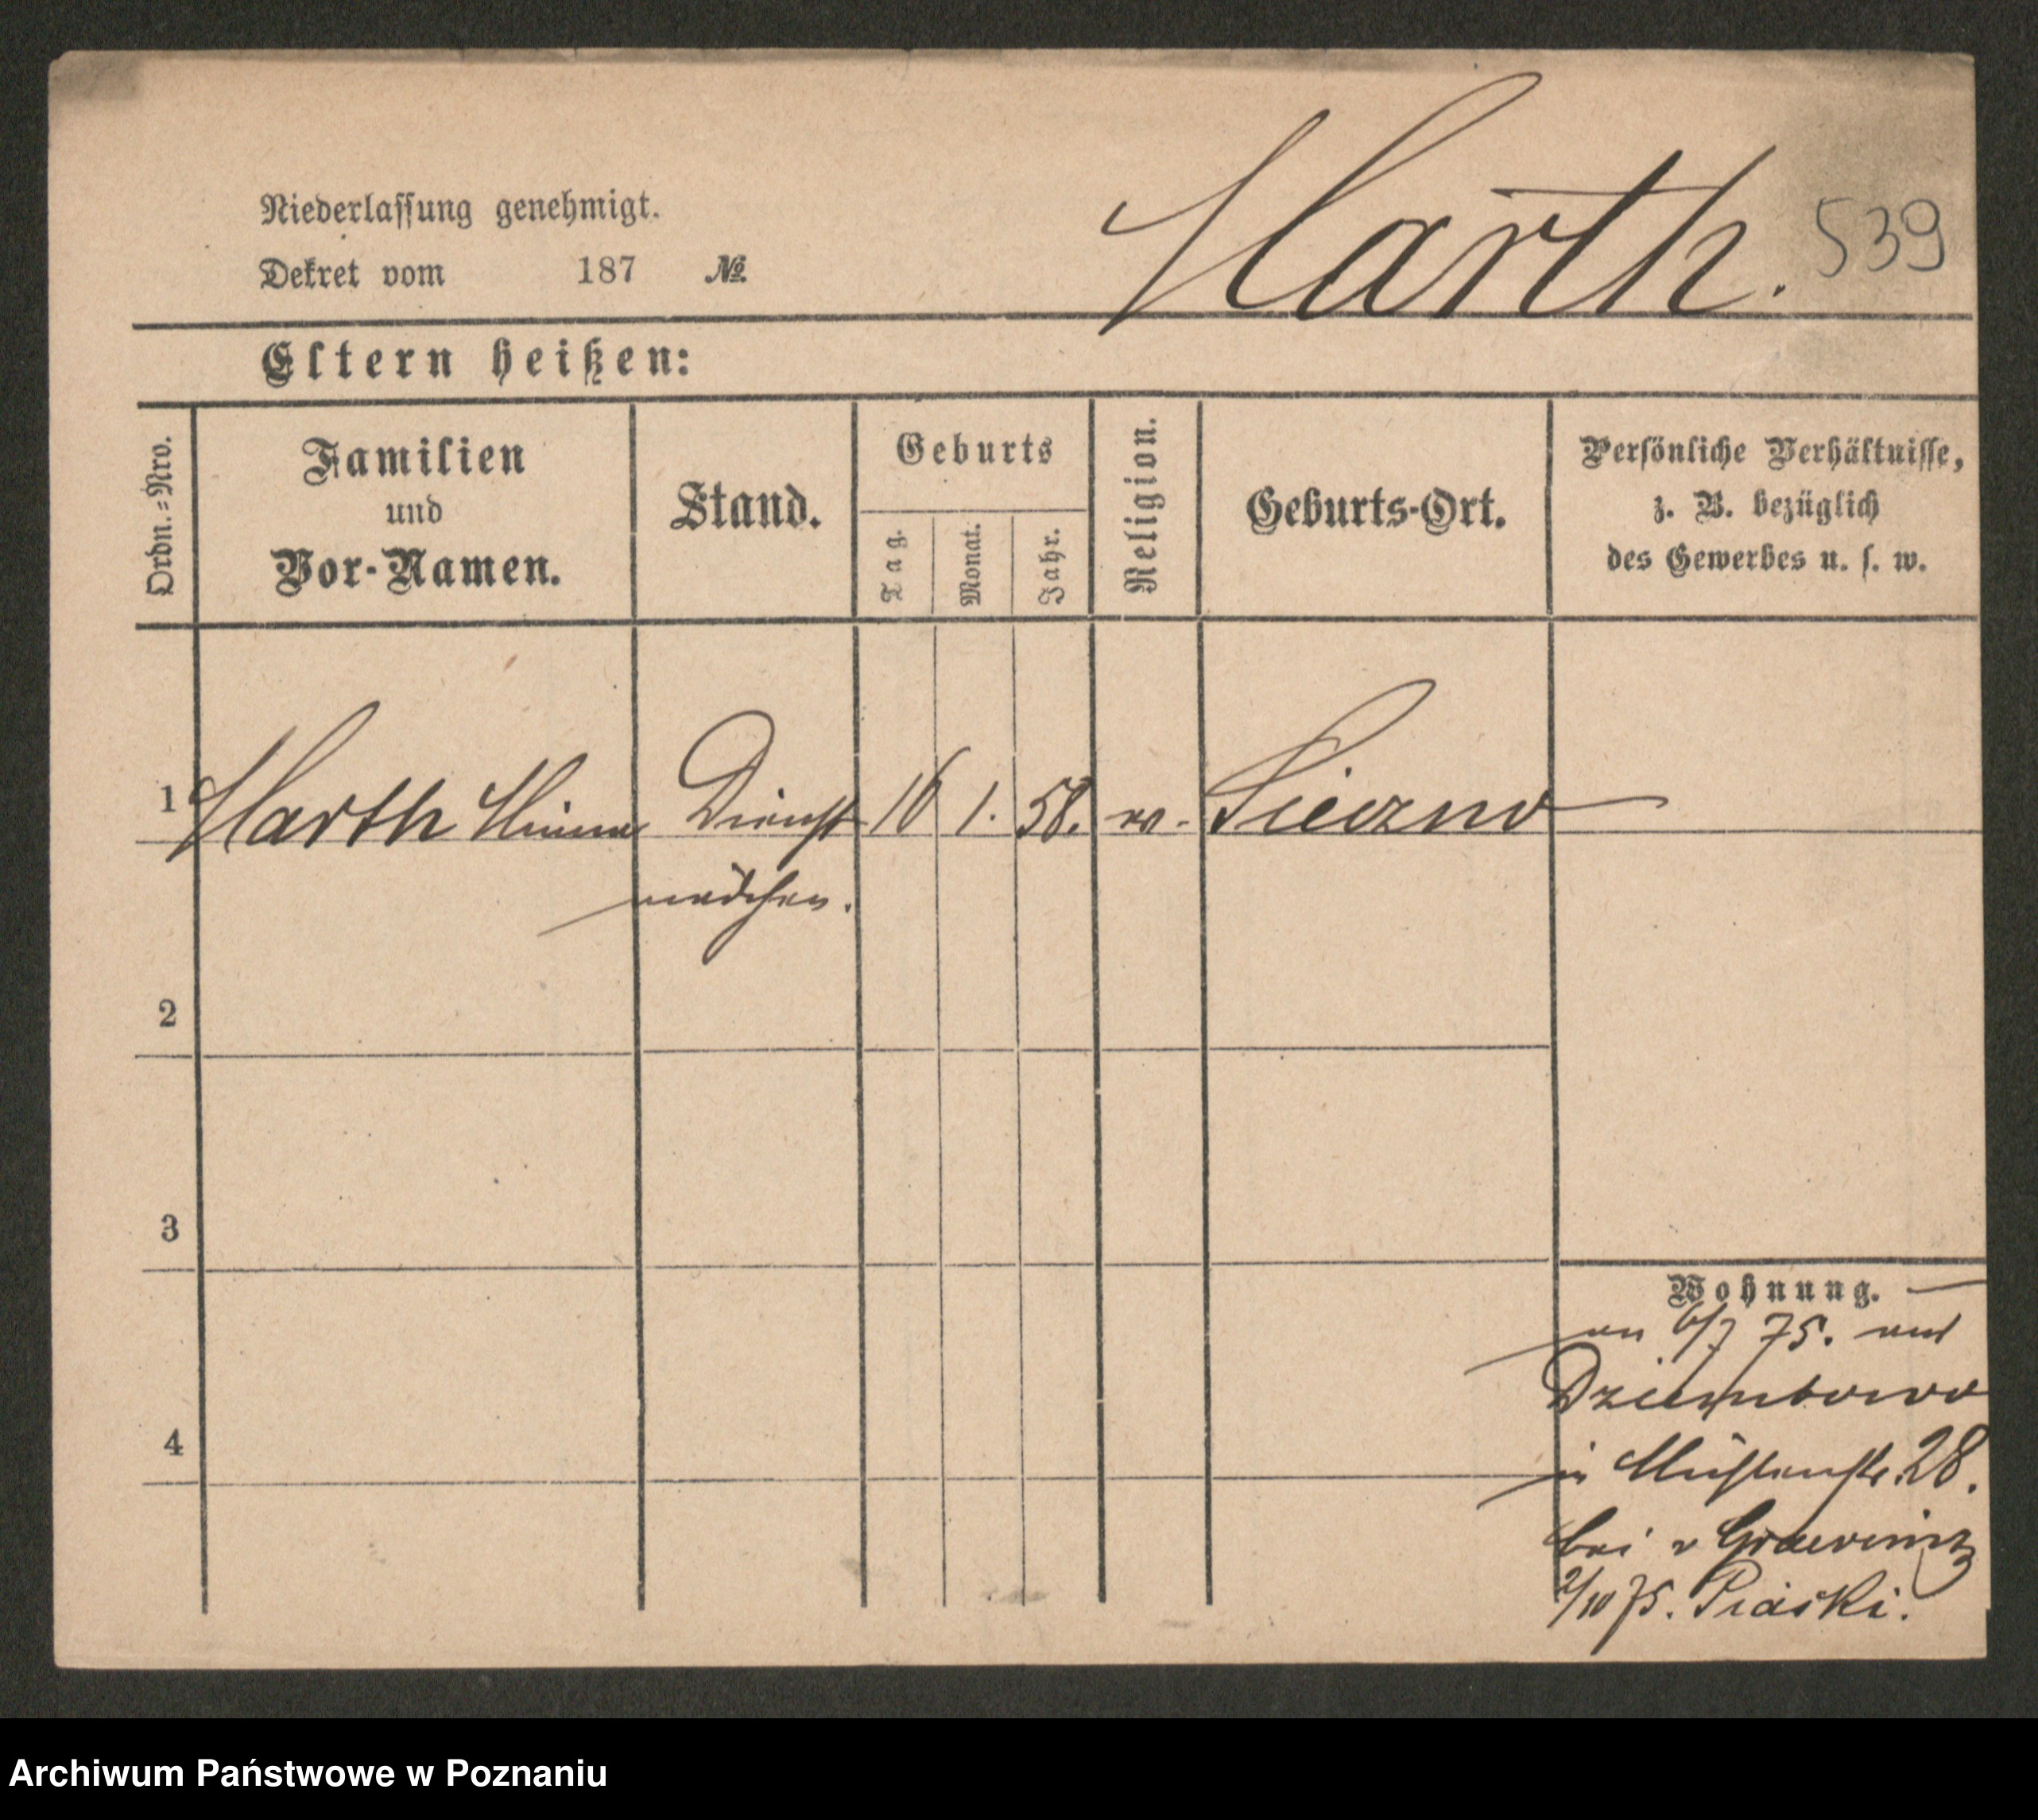 Niederlassung genehmigt.
Dekret vom 187 №
Harth. 539
Eltern heißen:
Ordn.-Nro.
Familien
und
Vor-Namen.
Stand.
Geburts
Tag.
Monat.
Jahr.
Religion.
Geburts-Ort.
Persönliche Verhältnisse,
z. B. bezüglich
des Gewerbes u. s. w.
1 Harth Minna Dienst 16 1. 58. ev.
mädchen.
2
3
4
Wohnung.
an 6/7 75. aus
Dziembowo
in Mühlenstr. 28.
bei v
2/10 75. Piaski.
Archiwum Państwowe w Poznaniu